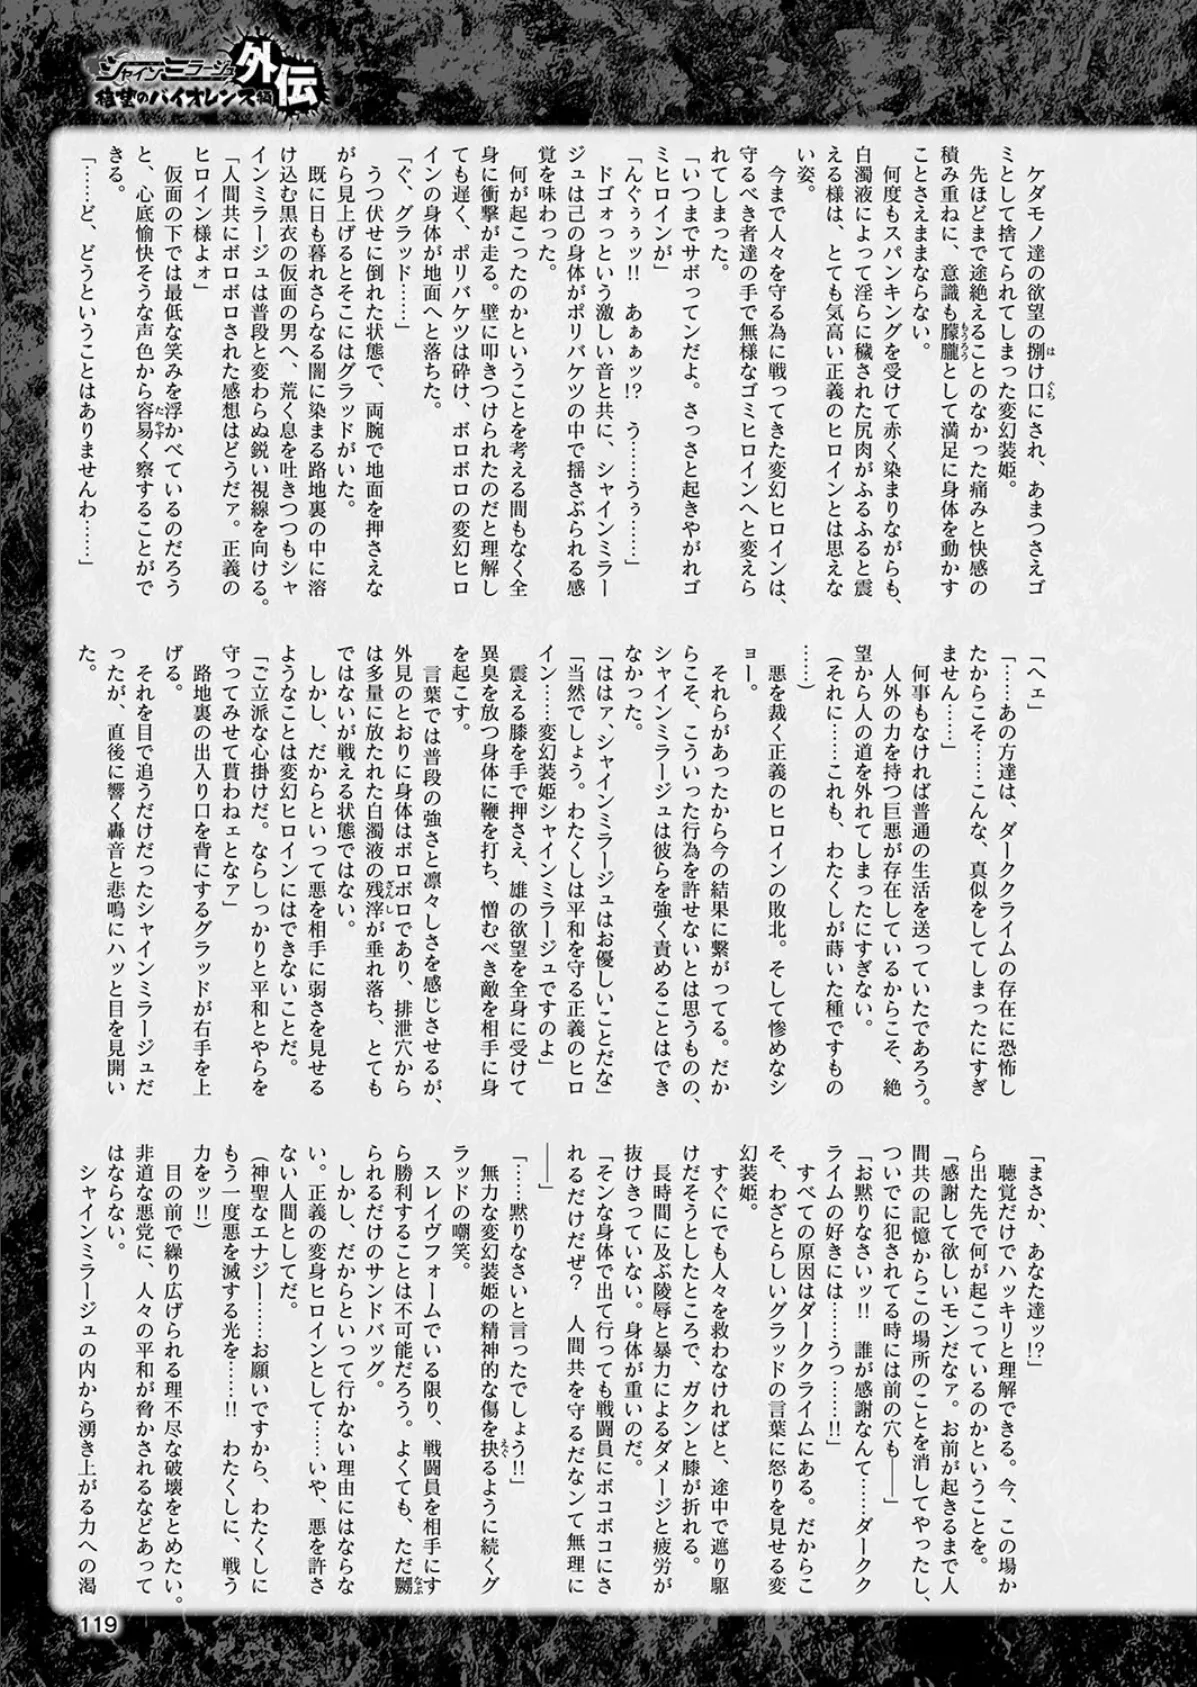 シャインミラージュ外伝
絶望のバイオレンス編
ケダモノ達の欲望の捌け口にされ、あまつさえゴ
ミとして捨てられてしまった変幻装姫。
先ほどまで途絶えることのなかった痛みと快感の
積み重ねに、意識も朦朧として満足に身体を動かす
ことさえままならない。
何度もスパンキングを受けて赤く染まりながらも、
白濁液によって淫らに穢された尻肉がふるふると震
える様は、とても気高い正義のヒロインとは思えな
い姿。
今まで人々を守る為に戦ってきた変幻ヒロインは、
守るべき者達の手で無様なゴミヒロインへと変えら
れてしまった。
「いつまでサボってンだよ。さっさと起きやがれゴ
ミヒロインが」
「んぐぅぅッ!!　あぁぁッ!?　う……うぅ……」
ドゴォっという激しい音と共に、シャインミラー
ジュは己の身体がポリバケツの中で揺さぶられる感
覚を味わった。
何が起こったのかということを考える間もなく全
身に衝撃が走る。壁に叩きつけられたのだと理解し
ても遅く、ポリバケツは砕け、ボロボロの変幻ヒロ
インの身体が地面へと落ちた。
「ぐ、グラッド……」
うつ伏せに倒れた状態で、両腕で地面を押さえな
がら見上げるとそこにはグラッドがいた。
既に日も暮れさらなる闇に染まる路地裏の中に溶
け込む黒衣の仮面の男へ、荒く息を吐きつつもシャ
インミラージュは普段と変わらぬ鋭い視線を向ける。
「人間共にボロボロされた感想はどうだァ。正義の
ヒロイン様よォ」
仮面の下では最低な笑みを浮かべているのだろう
と、心底愉快そうな声色から容易く察することがで
きる。
「……ど、どうということはありませんわ……」
「ヘェ」
「……あの方達は、ダーククライムの存在に恐怖し
たからこそ……こんな、真似をしてしまったにすぎ
ません……」
何事もなければ普通の生活を送っていたであろう。
人外の力を持つ巨悪が存在しているからこそ、絶
望から人の道を外れてしまったにすぎない。
（それに……これも、わたくしが蒔いた種ですもの
……）
悪を裁く正義のヒロインの敗北。そして惨めなシ
ョー。
それらがあったから今の結果に繋がってる。だか
らこそ、こういった行為を許せないとは思うものの、
シャインミラージュは彼らを強く責めることはでき
なかった。
「ははァ、シャインミラージュはお優しいことだな」
「当然でしょう。わたくしは平和を守る正義のヒロ
イン……変幻装姫シャインミラージュですのよ」
震える膝を手で押さえ、雄の欲望を全身に受けて
異臭を放つ身体に鞭を打ち、憎むべき敵を相手に身
を起こす。
言葉では普段の強さと凛々しさを感じさせるが、
外見のとおりに身体はボロボロであり、排泄穴から
は多量に放たれた白濁液の残滓が垂れ落ち、とても
ではないが戦える状態ではない。
しかし、だからといって悪を相手に弱さを見せる
ようなことは変幻ヒロインにはできないことだ。
「ご立派な心掛けだ。ならしっかりと平和とやらを
守ってみせて貰わねェとなァ」
路地裏の出入り口を背にするグラッドが右手を上
げる。
それを目で追うだけだったシャインミラージュだ
ったが、直後に響く轟音と悲鳴にハッと目を見開い
た。
「まさか、あなた達ッ!?」
聴覚だけでハッキリと理解できる。今、この場か
ら出た先で何が起こっているのかということを。
「感謝して欲しいモンだなァ。お前が起きるまで人
間共の記憶からこの場所のことを消してやったし、
ついでに犯されてる時には前の穴も――」
「お黙りなさいッ!!　誰が感謝なんて……ダークク
ライムの好きには……うっ……!!」
すべての原因はダーククライムにある。だからこ
そ、わざとらしいグラッドの言葉に怒りを見せる変
幻装姫。
すぐにでも人々を救わなければと、途中で遮り駆
けだそうとしたところで、ガクンと膝が折れる。
長時間に及ぶ陵辱と暴力によるダメージと疲労が
抜けきっていない。身体が重いのだ。
「そンな身体で出て行っても戦闘員にボコボコにさ
れるだけだぜ？　人間共を守るだなンて無理に
――」
「……黙りなさいと言ったでしょう!!」
無力な変幻装姫の精神的な傷を抉るように続くグ
ラッドの嘲笑。
スレイヴフォームでいる限り、戦闘員を相手にす
ら勝利することは不可能だろう。よくても、ただ嬲
られるだけのサンドバッグ。
しかし、だからといって行かない理由にはならな
い。正義の変身ヒロインとして……いや、悪を許さ
ない人間としてだ。
（神聖なエナジー……お願いですから、わたくしに
もう一度悪を滅する光を……!!　わたくしに、戦う
力をッ!!）
目の前で繰り広げられる理不尽な破壊をとめたい。
非道な悪党に、人々の平和が脅かされるなどあって
はならない。
シャインミラージュの内から湧き上がる力への渇
119